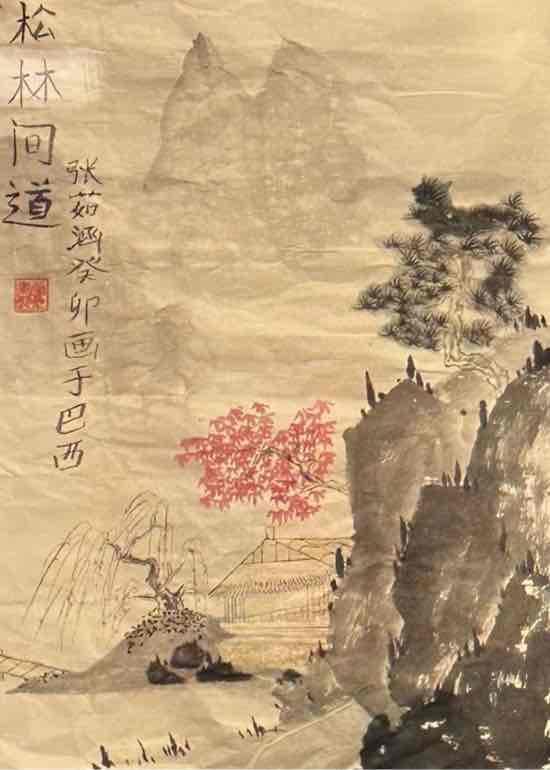 松林间道
张茹涵癸卯画于巴西